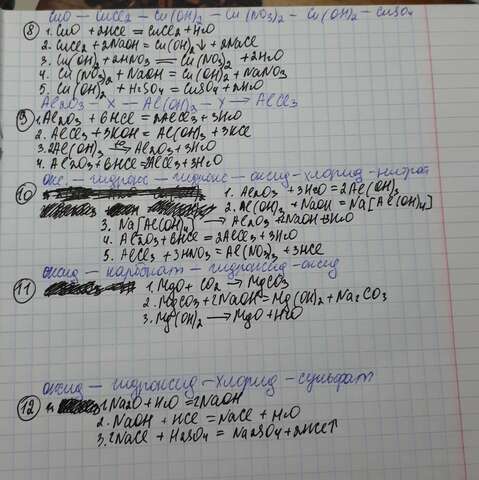 CuO — CuCl2 — Cu(OH)2 — Cu(NO3)2 — Cu(OH)2 — CuSO4
8 1. CuO + 2HCl = CuCl2 + H2O
2. CuCl2 + 2NaOH = Cu(OH)2↓ + 2NaCl
3. Cu(OH)2 + 2HNO3 = Cu(NO3)2 + 2H2O
4. Cu(NO3)2 + NaOH = Cu(OH)2 + NaNO3
5. Cu(OH)2 + H2SO4 = CuSO4 + 2H2O
Al2O3 — X — Al(OH)2 — Y → AlCl3
9 1. Al2O3 + 6HCl = 2AlCl3 + 3H2O
2. AlCl3 + 3KOH = Al(OH)3 + 3KCl
3. 2Al(OH)3 → Al2O3 + 3H2O
4. Al2O3 + 6HCl = 2AlCl3 + 3H2O
окс — гидрокс — гидрокс — оксид — хлорид — нитрат
10 1. Al2O3 + 3H2O = 2Al(OH)3
2. Al(OH)3 + NaOH = Na[Al(OH)4]
3. Na[Al(OH)4] → Al2O3 + 2NaOH + H2O
4. Al2O3 + 6HCl = 2AlCl3 + 3H2O
5. AlCl3 + 3HNO3 = Al(NO3)3 + 3HCl
оксид — карбонат — гидроксид — оксид
11 1. MgO + CO2 → MgCO3
2. MgCO3 + 2NaOH = Mg(OH)2 + Na2CO3
3. Mg(OH)2 → MgO + H2O
оксид — гидроксид — хлорид — сульфат
12 1. Na2O + H2O = 2NaOH
2. NaOH + HCl = NaCl + H2O
3. 2NaCl + H2SO4 = Na2SO4 + 2HCl↑